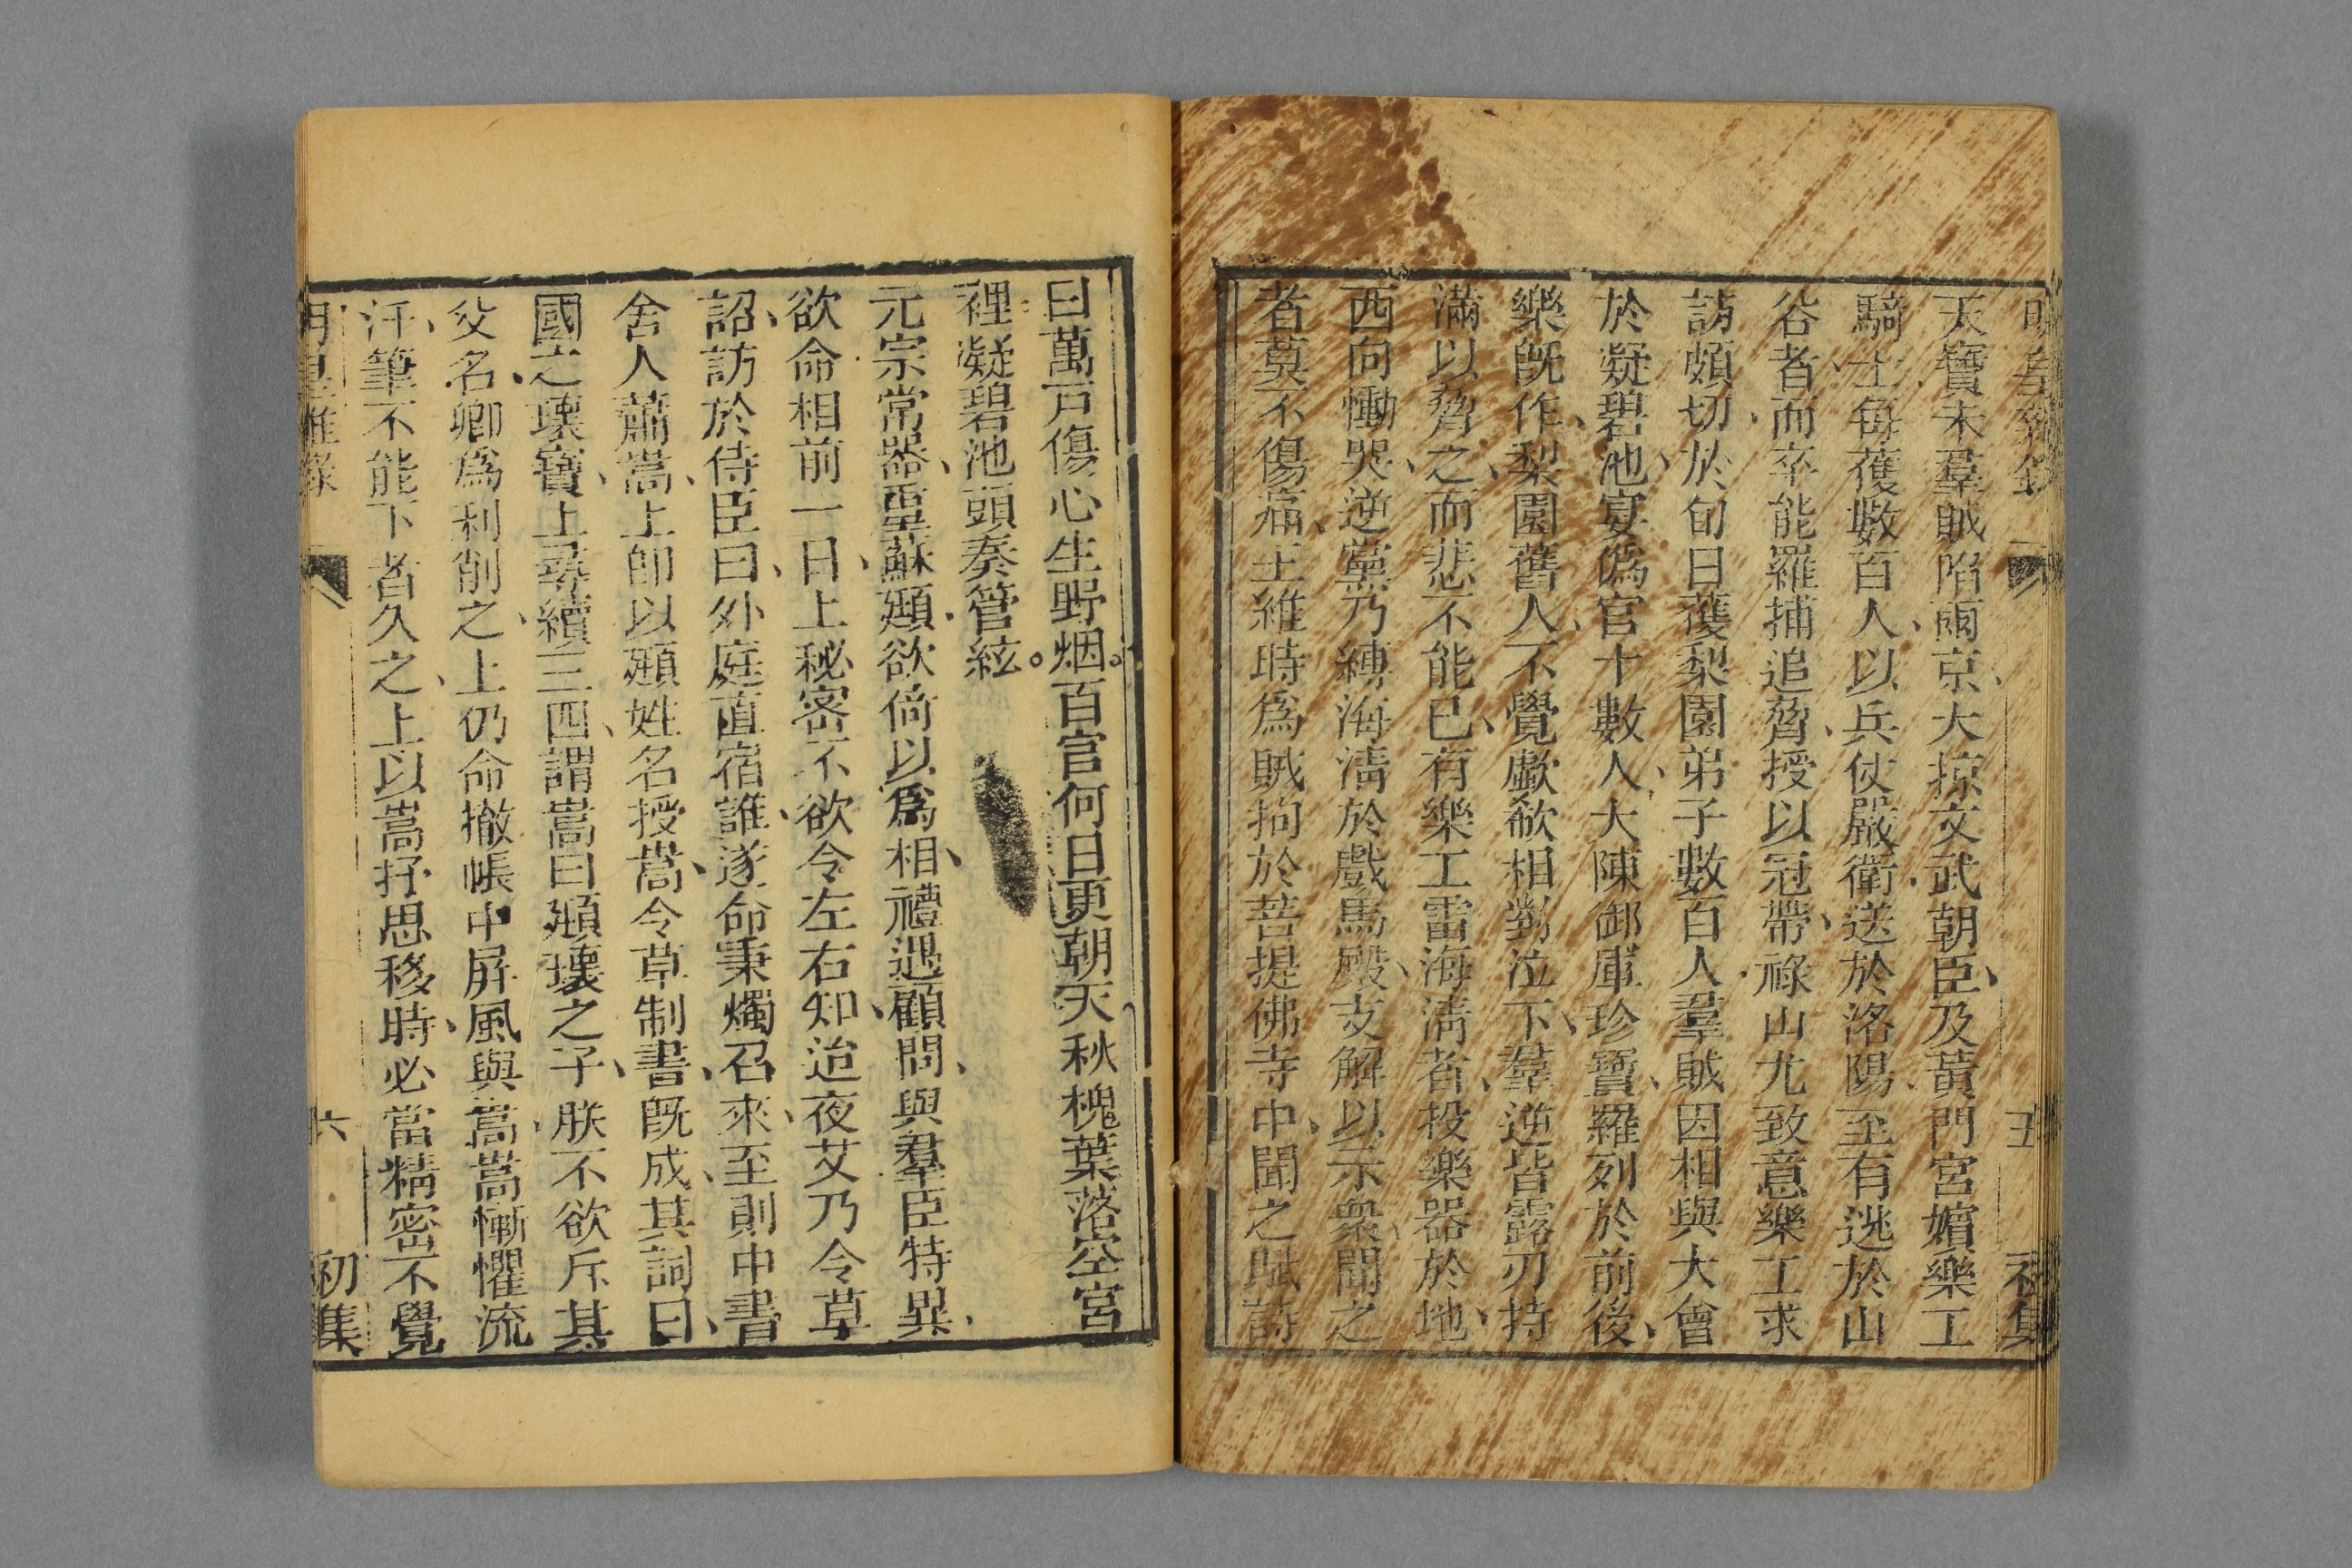 天寶末羣賊陷兩京大掠文武朝臣及黃門宮嬪樂工
騎士每獲數百人以兵仗嚴衛送於洛陽至有逃於山
谷者而卒能羅捕追脅授以冠帶祿山尤致意樂工求
訪頗切於旬日獲梨園弟子數百人羣賊因相與大會
於凝碧池宴偽官十數人大陳御庫珍寶羅列於前後
樂既作梨園舊人不覺歔欷相對泣下羣逆皆露刃持
滿以脅之而悲不能已有樂工雷海清者投樂器於地
西向慟哭逆黨乃縛海清於戲馬殿支解以示衆聞之
者莫不傷痛王維時為賊拘於菩提佛寺中聞之賦詩
曰萬戸傷心生野烟。百官何日更朝天秋槐葉落空宮
裡凝碧池頭奏管絃。
元宗常器重蘇頲欲倚以為相禮遇顧問與羣臣特異
欲命相前一日上秘密不欲令左右知迨夜艾乃令草
詔訪於侍臣曰外庭直宿誰遂命秉燭召來至則中書
舍人蕭嵩上卽以頲姓名授嵩令草制書既成其詞曰
國之瓌寶上尋繹三四謂嵩曰頲瓌之子朕不欲斥其
父名卿為刊削之上仍命撤帳中屏風與嵩嵩慚懼流
汗筆不能下者久之上以嵩抒思移時必當精密不覺
六 初集